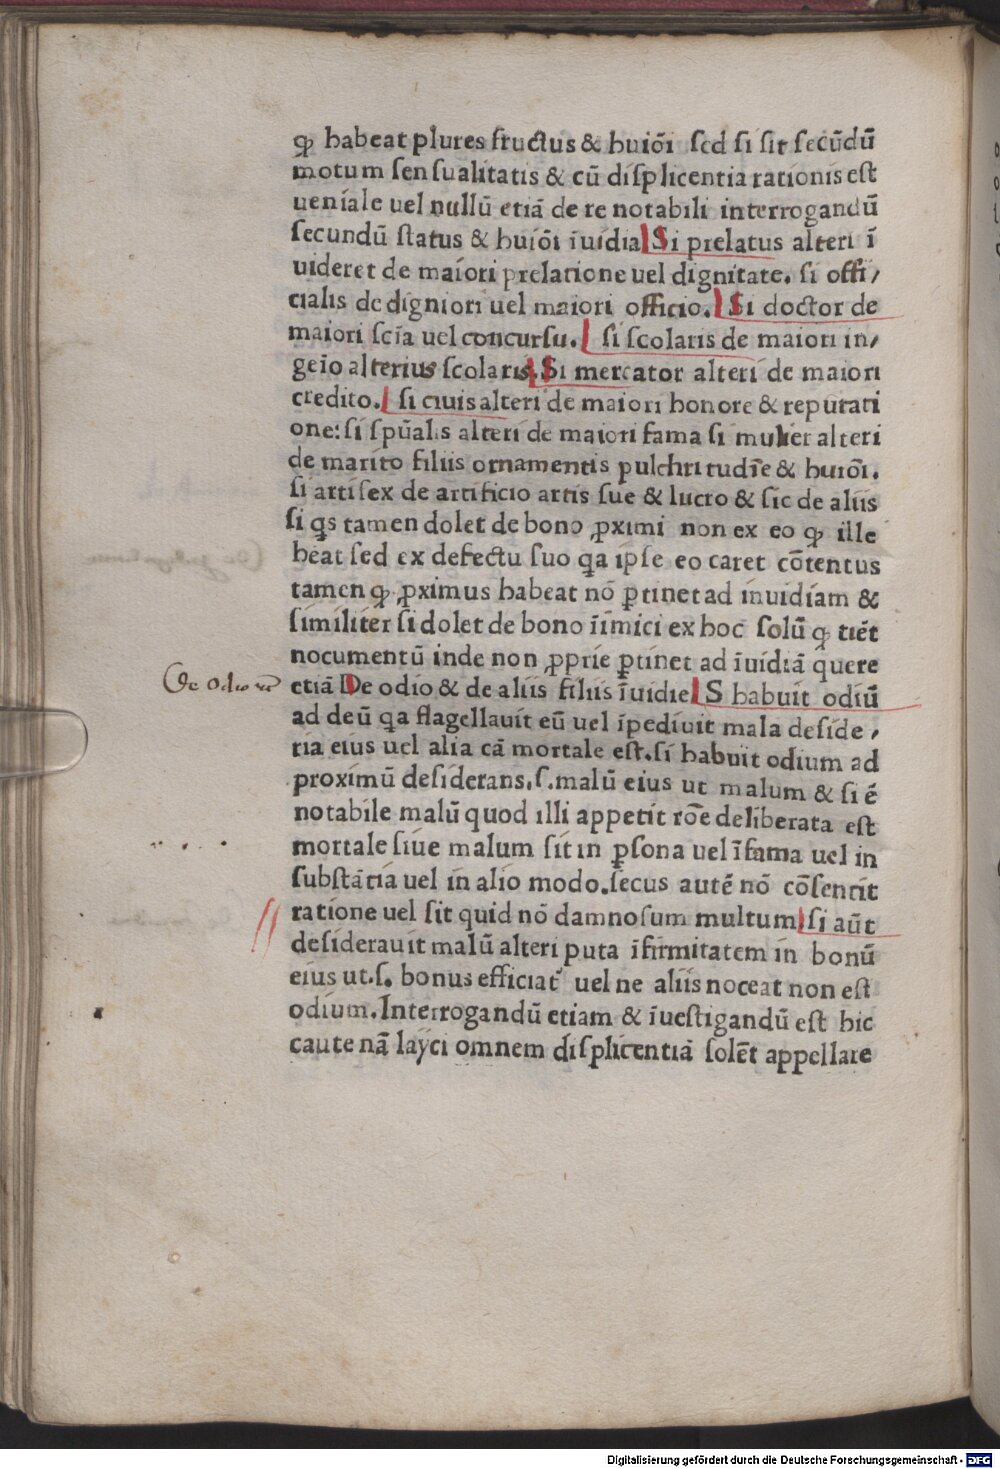 ꝙ habeat plures fructus & huiõi sed si sit secũdũ
motum sensualitatis & cũ displicentia rationis est
ueniale uel nullũ etiã de re notabili interrogandũ
secundũ status & huiõi ĩuidia Si prelatus alteri ĩ
uideret de maiori prelatione uel dignitate. si offi/
cialis de digniori uel maiori officio. Si doctor de
maiori scĩa uel concursu. si scolaris de maiori in/
geĩo alterius scolaris. Si mercator alteri de maiori
credito. si ciuis alteri de maiori honore & reputati
one: si spũalis alteri de maiori fama si mulier alteri
de marito filiis ornamentis pulchritudĩe & huiõi.
si artifex de artificio artis sue & lucro & sic de aliis
si q̃s tamen dolet de bono ꝓximi non ex eo ꝙ ille
beat sed ex defectu suo q̃a ipse eo caret cõtentus
tamen ꝙ ꝓximus habeat nõ ꝑtinet ad inuidiam &
similiter si dolet de bono ĩimici ex hoc solũ ꝙ tiẽt
nocumentũ inde non ꝓprie ꝑtinet ad ĩuidiã quere
De odio
etiã De odio & de aliis filiis ĩuidie S habuit odiũ
ad deũ q̃a flagellauit eũ uel ĩpediuit mala deside/
ria eius uel alia cã mortale est. si habuit odium ad
proximũ desiderans. s. malũ eius ut malum & si ẽ
notabile malũ quod illi appetit rõe deliberata est
mortale siue malum sit in ꝑsona uel ĩfama uel in
substãtia uel in alio modo. secus autẽ nõ cõsentit
ratione uel sit quid nõ damnosum multum si aũt
desiderauit malũ alteri puta ĩfirmitatem in bonũ
eius ut. s. bonus efficiat᷑ uel ne aliis noceat non est
odium. Interrogandũ etiam & ĩuestigandũ est hic
caute nã layci omnem displicentiã solẽt appellare
Digitalisierung gefördert durch die Deutsche Forschungsgemeinschaft - DFG